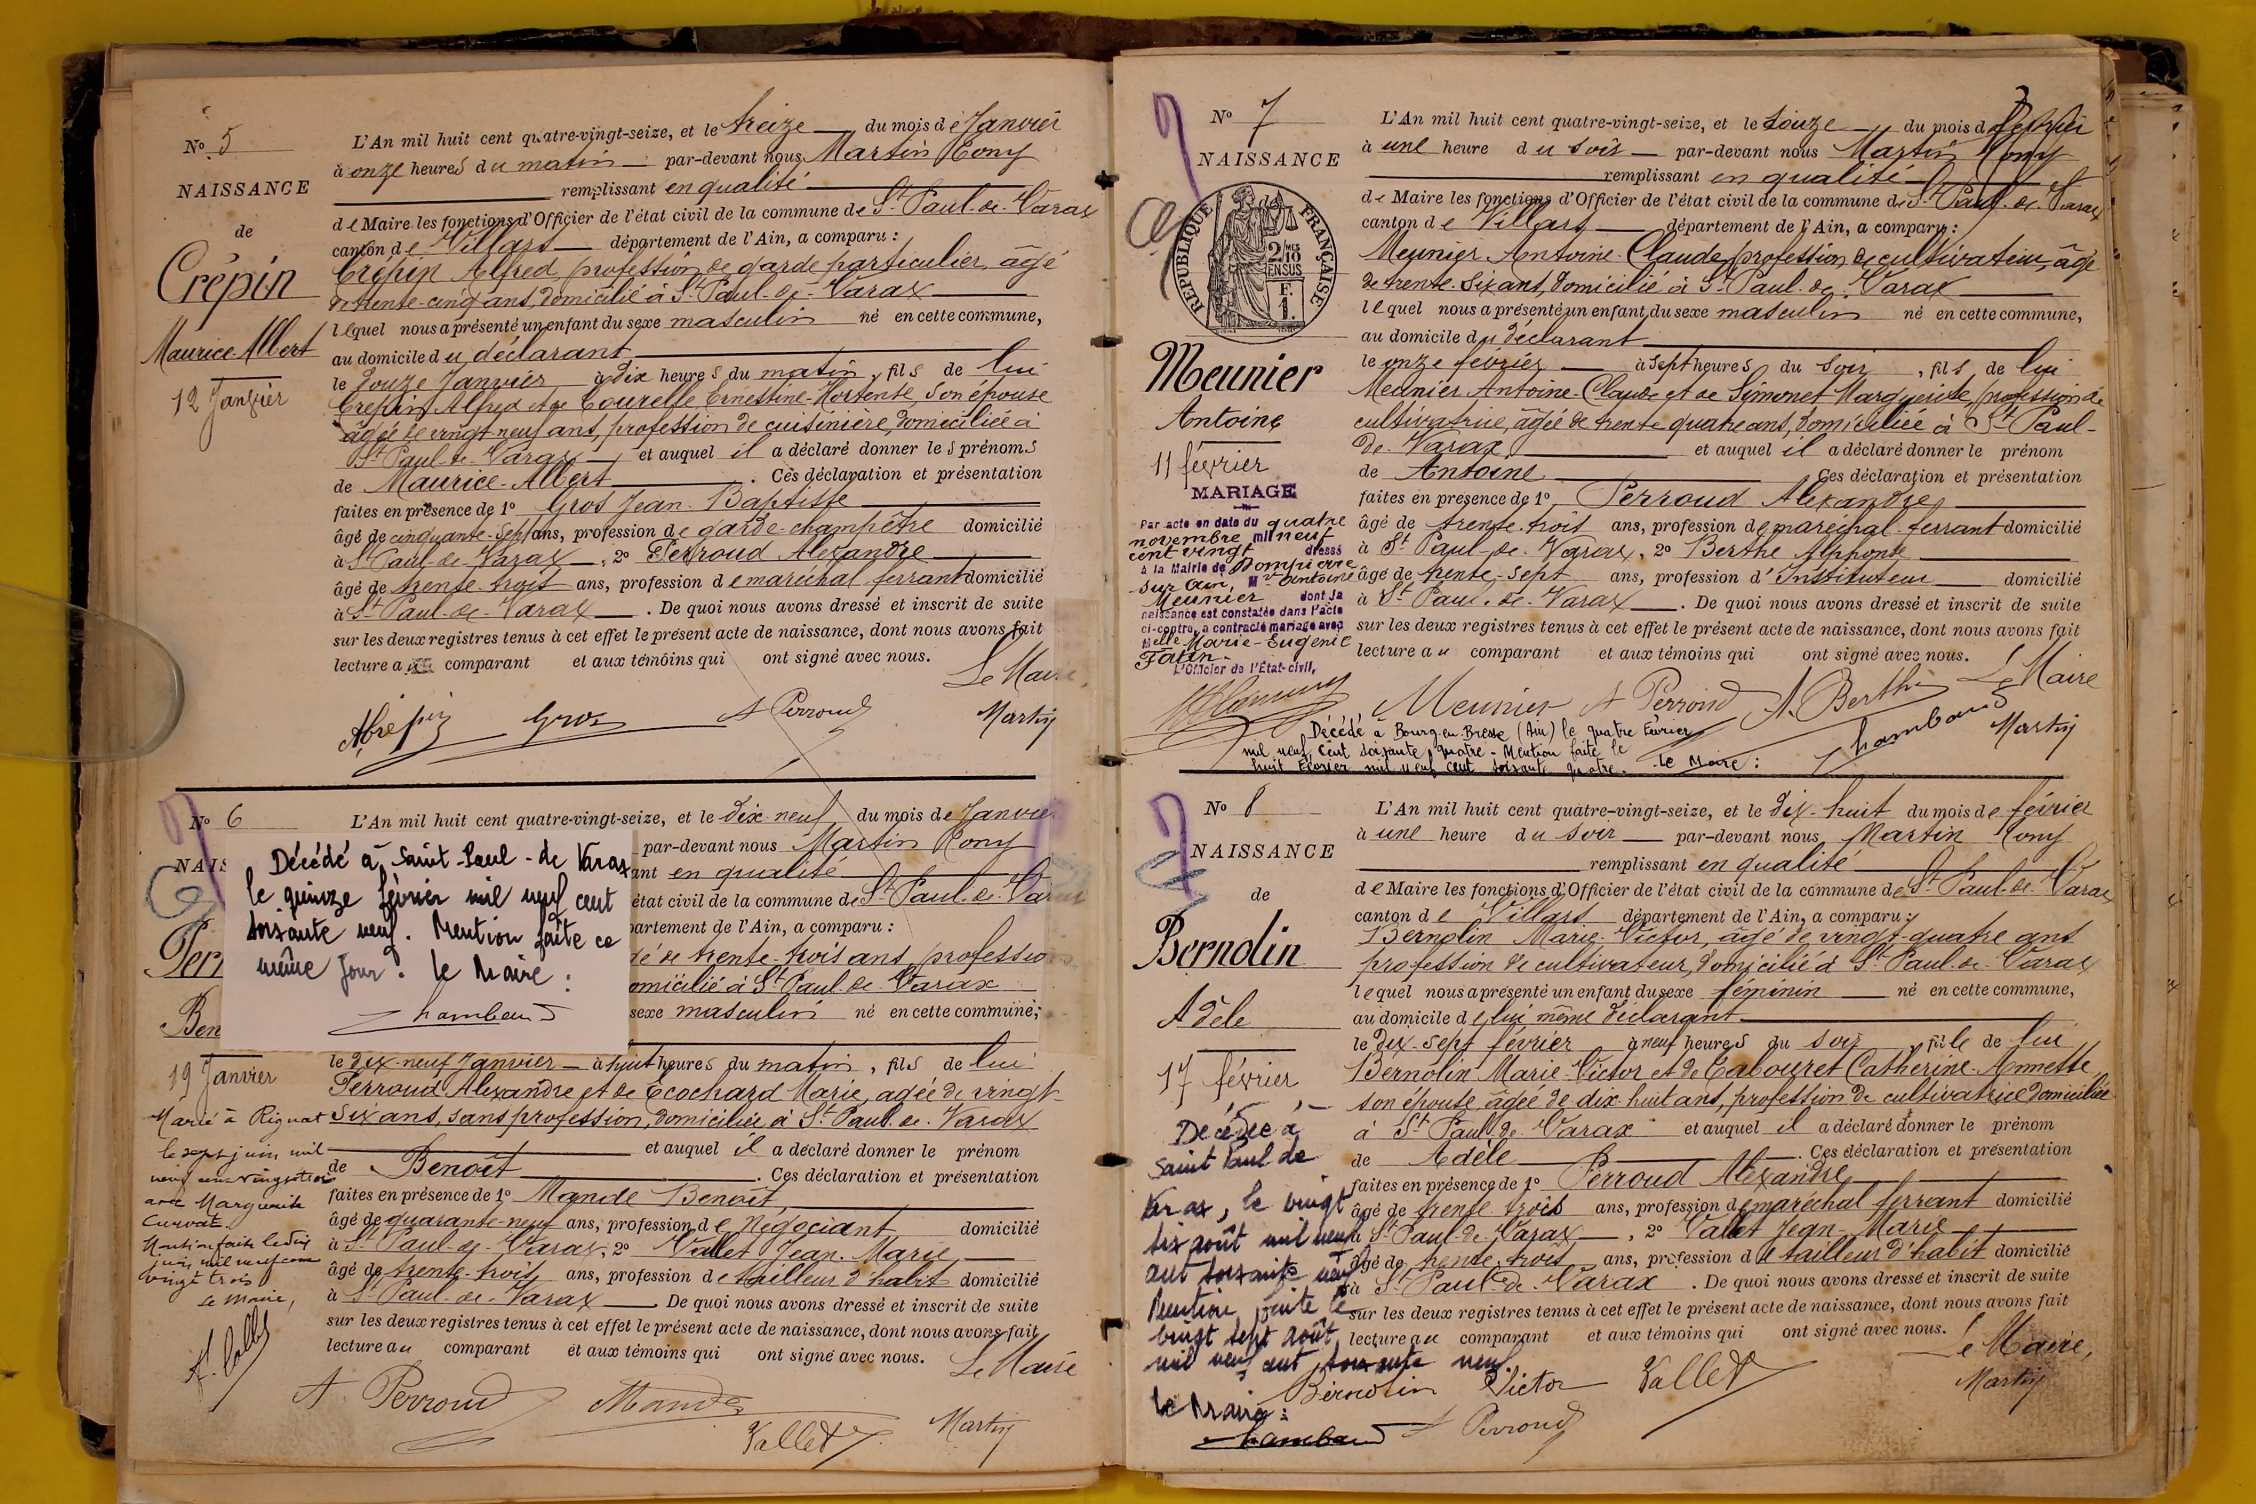 No 5
NAISSANCE
de
Crépin
Maurice-Albert
12 Janvier
L'An mil huit cent quatre-vingt-seize, et le treize du mois de Janvier
à onze heures du matin par-devant nous Martin Rony
remplissant en qualité
de Maire les fonctions d'Officier de l'état civil de la commune de St Paul-de-Varax
canton de Villars département de l'Ain, a comparu :
Crépin Alfred, profession de garde particulier, âgé
de trente-cinq ans, domicilié à St Paul-de-Varax
lequel nous a présenté un enfant du sexe masculin né en cette commune,
au domicile du déclarant
le douze Janvier à dix heures du matin, fils de lui
Crépin Alfred et de Ernestine-Hortense, son épouse
âgée de vingt neuf ans, profession de cuisinière, domiciliée à
St Paul-de-Varax et auquel il a déclaré donner les prénoms
de Maurice-Albert. Ces déclaration et présentation
faites en présence de 1o Gros Jean-Baptiste
âgé de cinquante-sept ans, profession de garde-champêtre domicilié
à St Paul-de-Varax, 2o Perroud Alexandre
âgé de trente-trois ans, profession de maréchal ferrant domicilié
à St Paul-de-Varax. De quoi nous avons dressé et inscrit de suite
sur les deux registres tenus à cet effet le présent acte de naissance, dont nous avons fait
lecture au comparant et aux témoins qui ont signé avec nous.
Le Maire,
ACrépin Gros A Perroud Martin
No 6
NAIS
Per
Ben
19 Janvier
Marié à Rignat
le sept juin mil
neuf cent vingt trois
avec Marguerite
Curvat
Mention faite le dix
juin mil neuf cent
vingt trois
Le Maire,
Décédé à Saint-Paul-de Varax
le quinze février mil neuf cent
soixante neuf. Mention faite ce
même jour. Le Maire :
Chambaud
L'An mil huit cent quatre-vingt-seize, et le dix-neuf du mois de Janvier
par-devant nous Martin Rony
ant en qualité
état civil de la commune de St Paul-de-Varax
partement de l'Ain, a comparu :
é de trente-trois ans, profession
omicilié à St Paul-de-Varax
sexe masculin né en cette commune,
le dix-neuf Janvier à huit heures du matin, fils de lui
Perroud Alexandre et de Ecochard Marie, agée de vingt
six ans, sans profession, domiciliée à St Paul-de-Varax
et auquel il a déclaré donner le prénom
de Benoît. Ces déclaration et présentation
faites en présence de 1o Mande Benoît
âgé de quarante-neuf ans, profession de négociant domicilié
à St Paul-de-Varax, 2o Vallet Jean-Marie
âgé de trente-trois ans, profession de tailleur d'habit domicilié
à St Paul-de-Varax. De quoi nous avons dressé et inscrit de suite
sur les deux registres tenus à cet effet le présent acte de naissance, dont nous avons fait
lecture au comparant et aux témoins qui ont signé avec nous.
Le Maire
A Perroud Mande Vallet Martin
3
No 7
NAISSANCE
RÉPUBLIQUE FRANÇAISE
2/10 EN SUS
F. 1.
Meunier
Antoine
11 février
MARIAGE
Par acte en date du quatre
novembre mil neuf
cent vingt dressé
à la Mairie de Dompierre
sur Ain, Mr Antoine
Meunier dont la
naissance est constatée dans l'acte
ci-contre, a contracté mariage avec
Melle Marie-Eugénie
L'Officier de l'État-civil,
L'An mil huit cent quatre-vingt-seize, et le douze du mois de février
à une heure du soir par-devant nous Martin Rony
remplissant en qualité
de Maire les fonctions d'Officier de l'état civil de la commune de St Paul-de-Varax
canton de Villars département de l'Ain, a comparu :
Meunier Antoine-Claude, profession de cultivateur, âgé
de trente-six ans, domicilié à St Paul-de-Varax
lequel nous a présenté un enfant du sexe masculin né en cette commune,
au domicile du déclarant
le onze février à sept heures du soir, fils de lui
Meunier Antoine-Claude et de Simonet Marguerite, profession de
cultivatrice, âgée de trente quatre ans, domiciliée à St Paul-
de-Varax et auquel il a déclaré donner le prénom
de Antoine Ces déclaration et présentation
faites en présence de 1o Perroud Alexandre
âgé de trente-trois ans, profession de maréchal-ferrant domicilié
à St Paul-de-Varax, 2o Berthe Alphonse
âgé de trente-sept ans, profession d'Instituteur domicilié
à St Paul-de-Varax. De quoi nous avons dressé et inscrit de suite
sur les deux registres tenus à cet effet le présent acte de naissance, dont nous avons fait
lecture au comparant et aux témoins qui ont signé avec nous.
Le Maire
Meunier A Perroud A. Berthe Martin
Décédé à Bourg en Bresse (Ain) le quatre Février
mil neuf cent soixante quatre - Mention faite le
huit Février mil neuf cent soixante quatre. Le Maire : Chambaud
No 8
NAISSANCE
de
Bernolin
Adèle
17 février
Décédée à
Saint Paul de
Varax, le vingt
six août mil neuf
cent soixante neuf
Mention faite le
vingt sept août
mil neuf cent soixante neuf.
Le Maire :
Chambaud
L'An mil huit cent quatre-vingt-seize, et le dix-huit du mois de février
à une heure du soir par-devant nous Martin Rony
remplissant en qualité
de Maire les fonctions d'Officier de l'état civil de la commune de St Paul-de-Varax
canton de Villars département de l'Ain, a comparu :
Bernolin Marie-Victor, âgé de vingt-quatre ans
profession de cultivateur, domicilié à St Paul-de-Varax
lequel nous a présenté un enfant du sexe féminin né en cette commune,
au domicile de lui même déclarant
le dix-sept février à neuf heures du soir, fille de lui
Bernolin Marie-Victor et de Cabouret Catherine-Annette,
son épouse âgée de dix huit ans, profession de cultivatrice domiciliée
à St Paul-de-Varax et auquel il a déclaré donner le prénom
de Adèle. Ces déclaration et présentation
faites en présence de 1o Perroud Alexandre
âgé de trente trois ans, profession de maréchal ferrant domicilié
à St Paul-de-Varax, 2o Vallet Jean-Marie
âgé de trente-trois ans, profession de tailleur d'habit domicilié
à St Paul-de-Varax. De quoi nous avons dressé et inscrit de suite
sur les deux registres tenus à cet effet le présent acte de naissance, dont nous avons fait
lecture au comparant et aux témoins qui ont signé avec nous.
Le Maire,
Bernolin Victor Vallet Martin
A Perroud